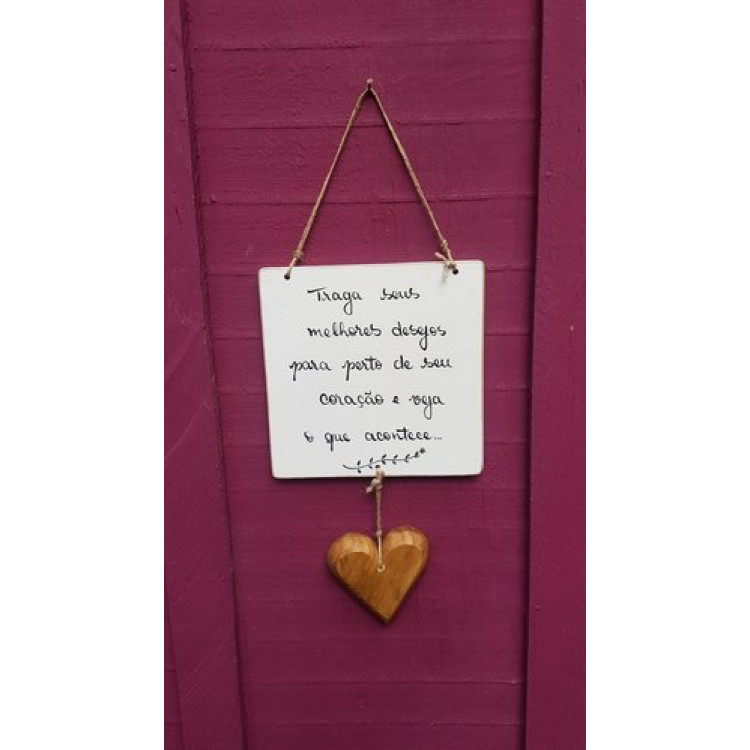 Traga seus
melhores desejos
para perto de seu
coração e veja
o que acontece...